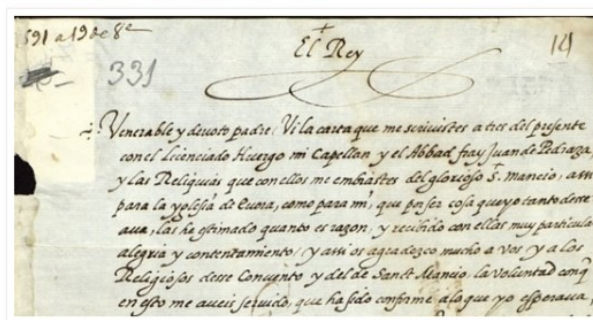 591 a 19 de 8e
El Rey
141
331
Venerable y devoto padre. Vi la carta que me scrivistes a tres del presente
con el licenciado Huergo mi Capellan y el Abbad fray Juan de Pedraza,
y las Reliquias que con ellos me embiastes del glorioso S. Mancio, assi
para la yglesia de Evora, como para mi, que por ser cosa que yo tanto desse
ava, las he estimado quanto es razon, y recibido con ellas muy particular
alegria y contentamiento, y assi os agradezco mucho a vos y a los
Religiosos desse Convento y del de Sanct Mancio, la voluntad conq
en esto me aveis servido, que ha sido conforme a lo que yo esperava,